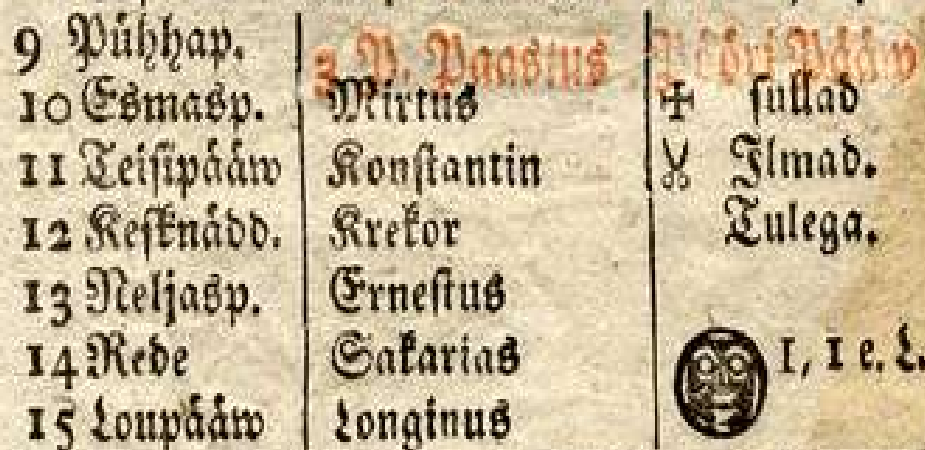 9 Pühhap. 2 P. Paastus Pööri Pääw
10 Esmasp. Mirtus ✠ sullad
11 Teisipääw Konstantin Ilmad.
12 Kesknädd. Krekor Tulega.
13 Neljasp. Ernestus
14 Rede Sakarias 1, 1 e. L.
15 Loupääw Longinus